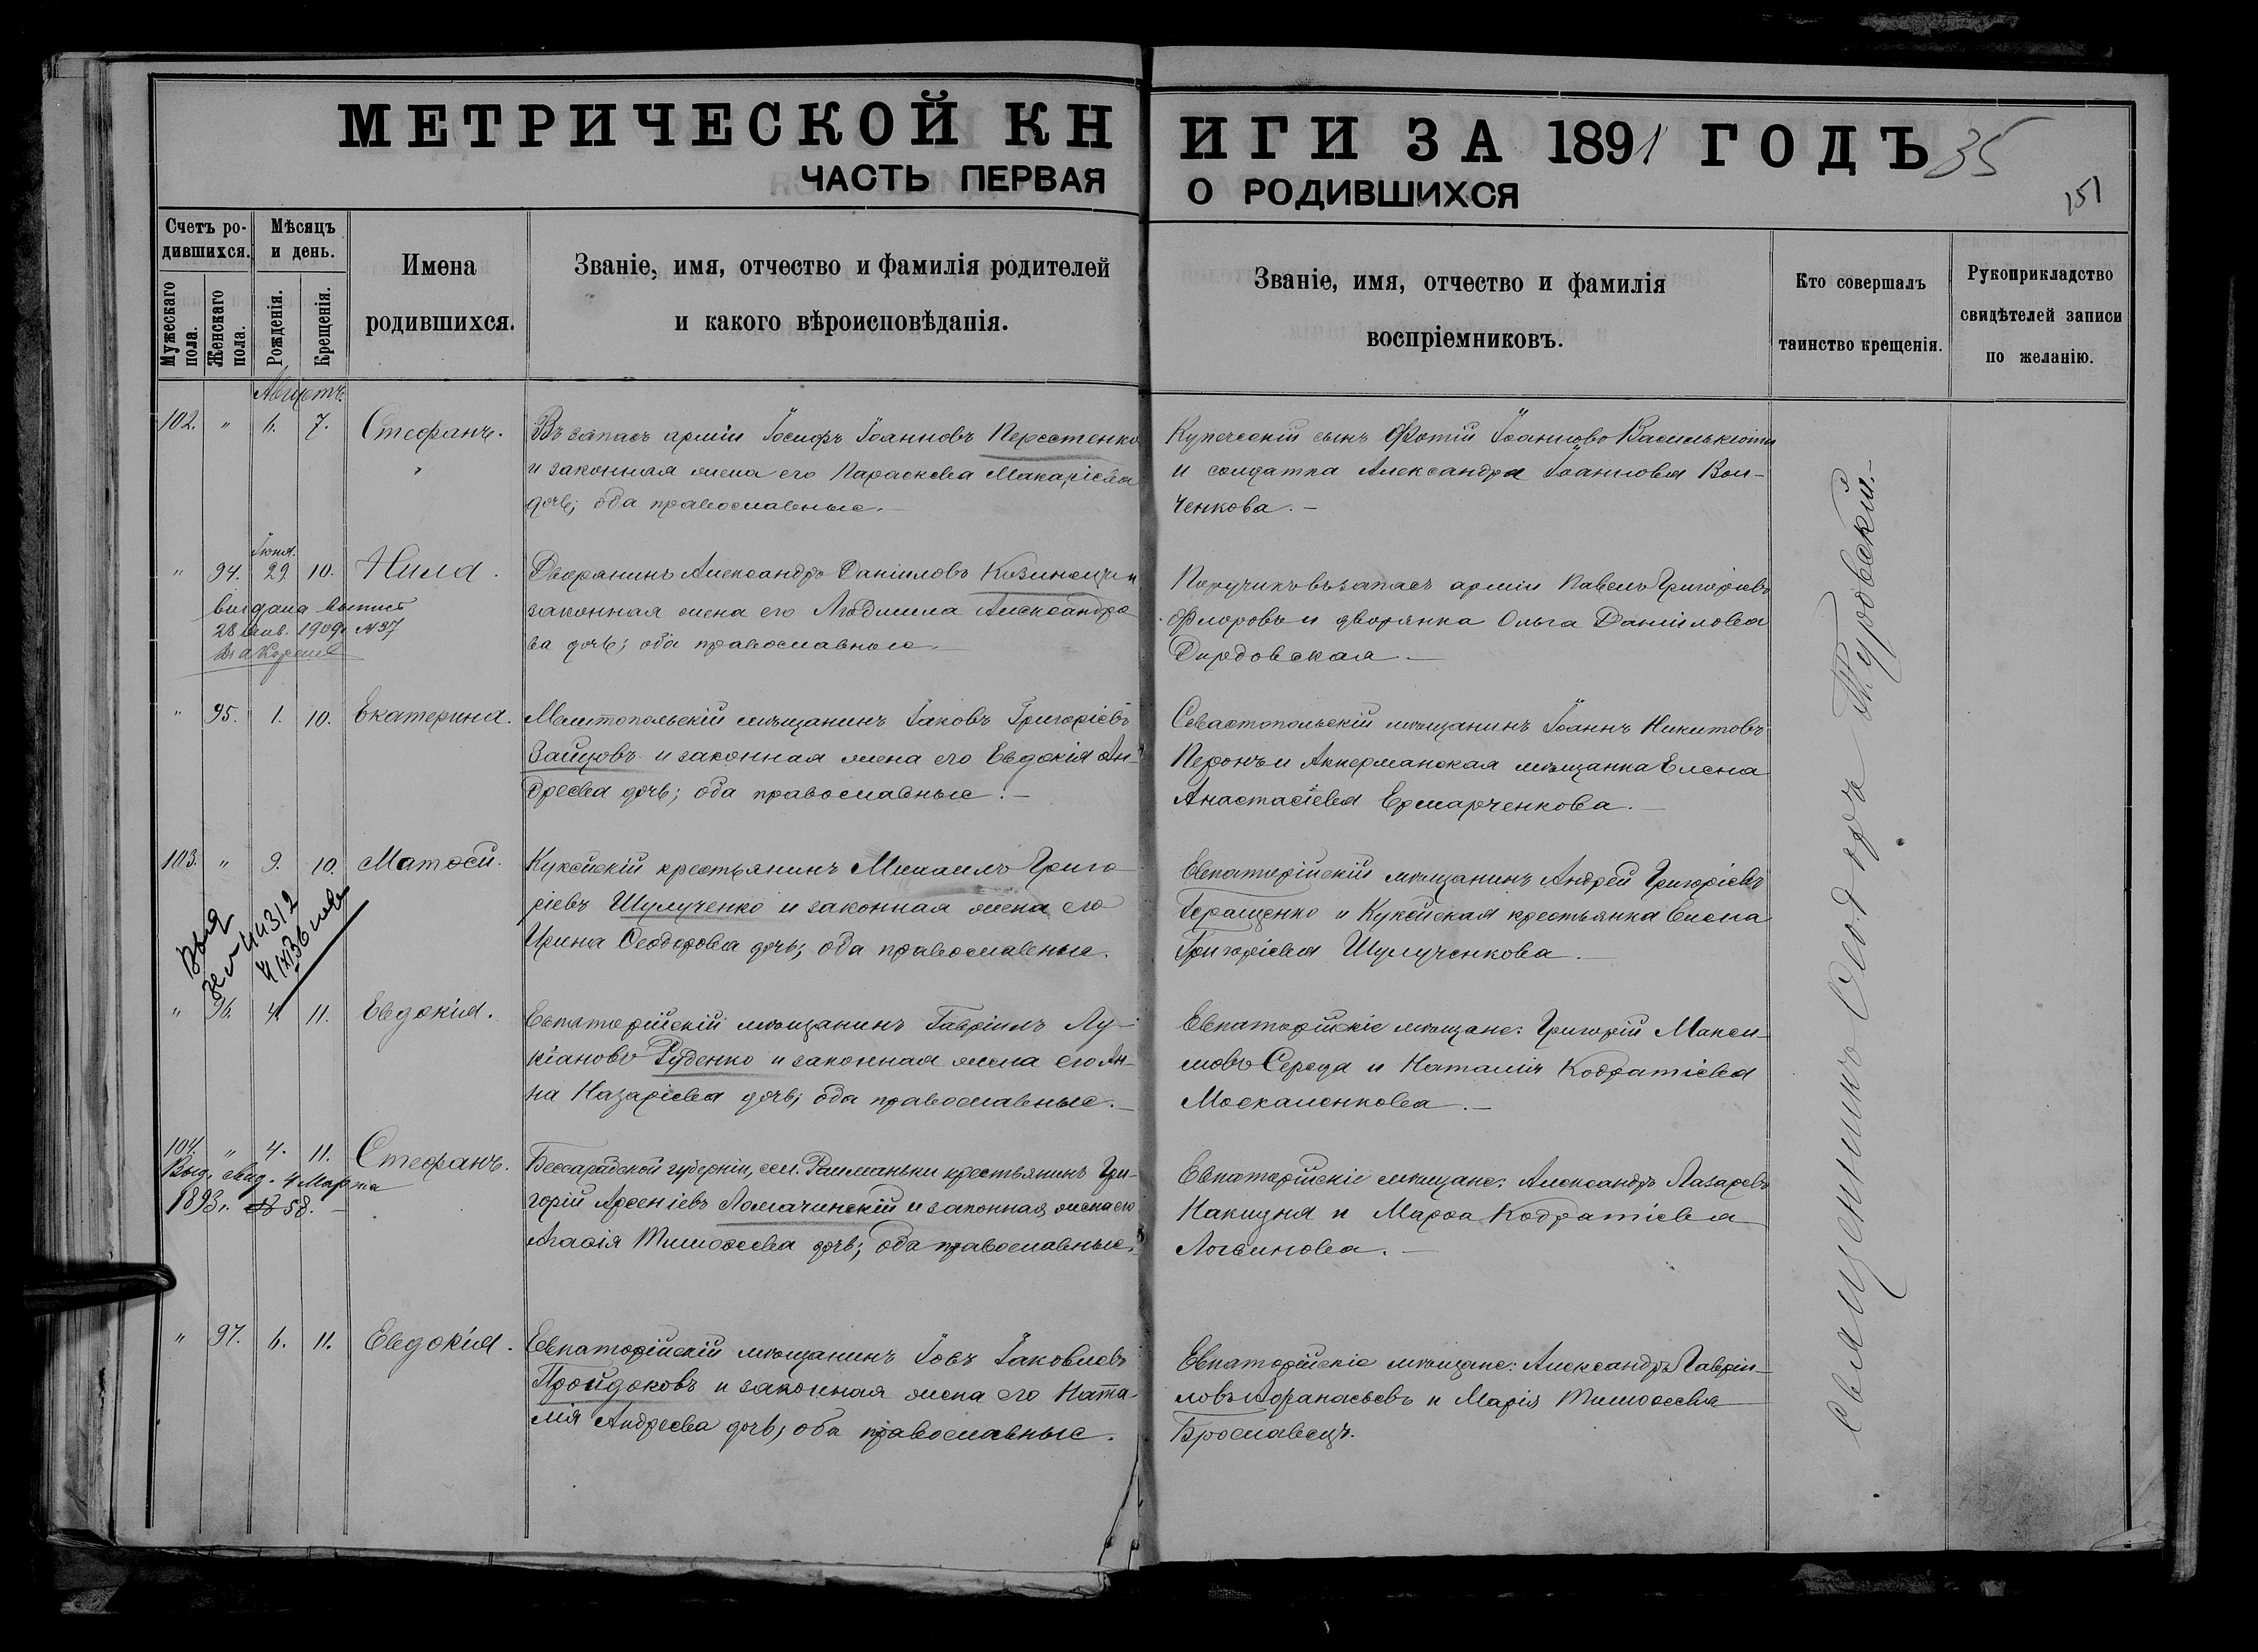 МЕТРИЧЕСКОЙ КНИГИ ЗА 1891 ГОДЪ 35
151
ЧАСТЬ ПЕРВАЯ О РОДИВШИХСЯ
Счетъ родившихся.
Мужескаго пола.
Женскаго пола.
Мѣсяцъ и день.
Рожденія.
Крещенія.
Имена
родившихся.
Званіе, имя, отчество и фамилія родителей
и какого вѣроисповѣданія.
Званіе, имя, отчество и фамилія
воспріемниковъ.
Кто совершалъ
таинство крещенія.
Рукоприкладство
свидѣтелей записи
по желанію.
Августъ.
102. " 6. 7. Стефанъ.
Въ запасѣ арміи Іосифъ Іоанновъ Перестенко
и законная жена его Параскева Макаріева
дочь; оба православные.—
Купеческій сынъ Фотій Іоанновъ
и солдатка Александра Іоаннова Вол-
ченкова.—
Іюня.
" 94. 29. 10. Нила.
выдана выпись
28 янв. 1909г. №37
Дворянинъ Александръ Даніиловъ и
законная жена его Людмила Александро-
ва дочь; оба православные.
Поручикъ въ запасѣ арміи Павелъ Григоріевъ
Флоровъ и дворянка Ольга Даніилова
Дирдовская.—
" 95. 1. 10. Екатерина.
Мелитопольскій мѣщанинъ Іаковъ Григоріевъ
Зайцовъ и законная жена его Евдокія Ан-
дреева дочь; оба православные.—
Севастопольскій мѣщанинъ Іоаннъ Никитовъ
и Аккерманская мѣщанка Елена
Анастасіева Ермарченкова.—
103. " 9. 10. Матѳей.
Кукейскій крестьянинъ Михаилъ Григо-
ріевъ Шулученко и законная жена его
Ирина Ѳеодорова дочь; оба православные.
Евпаторійскій мѣщанинъ Андрей Григоріевъ
Геращенко и Кукейская крестьянка Елена
Григоріева Шулученкова.—
" 96. 4. 11. Евдокія.
Евпаторійскій мѣщанинъ Гавріилъ Лу-
кіановъ Руденко и законная жена его Ан-
на Назаріева дочь; оба православные.—
Евпаторійскіе мѣщане: Григорій Макси-
мовъ Середа и Наталія Кодратіева
Москаленкова.—
104. " 4. 11. Стефанъ.
Выд. свид. 4 Марта
1893г. № 58.—
Бессарабской губерніи, сел. крестьянинъ Гри-
горій Арсеніевъ Ломачинскій и законная жена его
Агафія Тимоѳеева дочь; оба православные.
Евпаторійскіе мѣщане: Александръ Лазаревъ
и Марѳа Кодратіева
Логвинова.—
" 97. 6. 11. Евдокія.
Евпаторійскій мѣщанинъ Іовъ Іаковлевъ
Пройдоковъ и законная жена его Ната-
лія Андреева дочь; оба православные.
Евпаторійскіе мѣщане: Александръ Гавріи-
ловъ Афанасьевъ и Марія Тимоѳеева
Брославецъ.
Священникъ Ѳеодоръ Туровскій.—